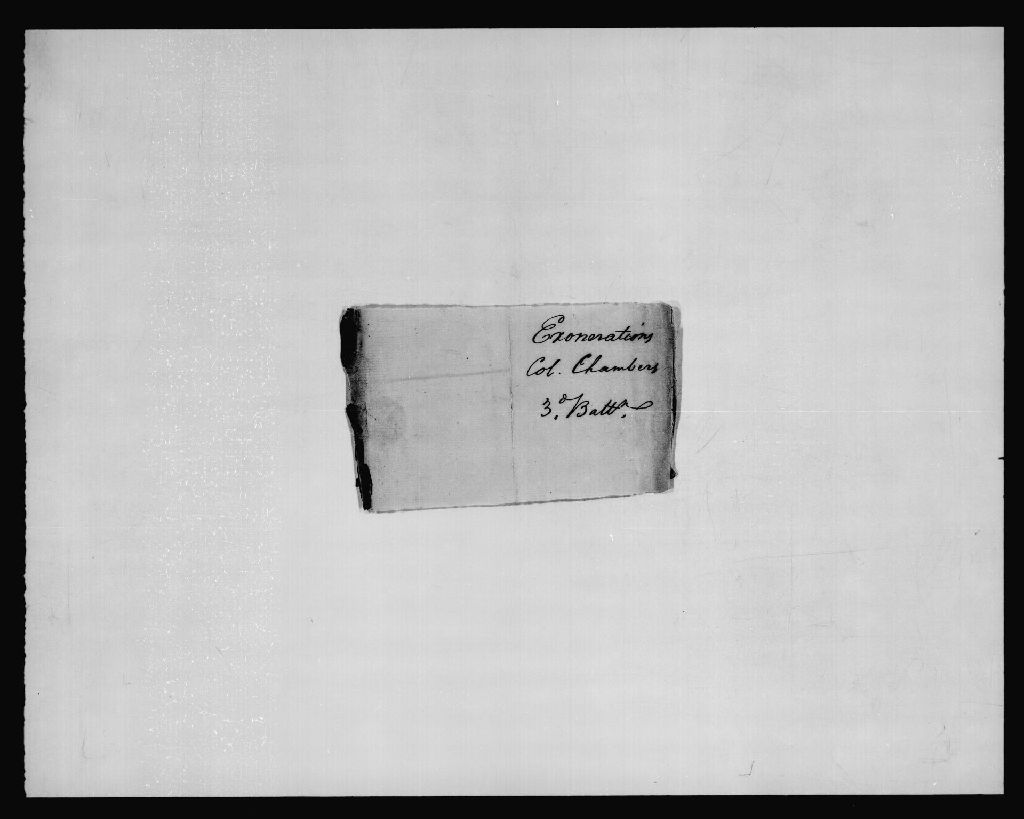 Exonerations
Col. Chambers
3.d Battn.